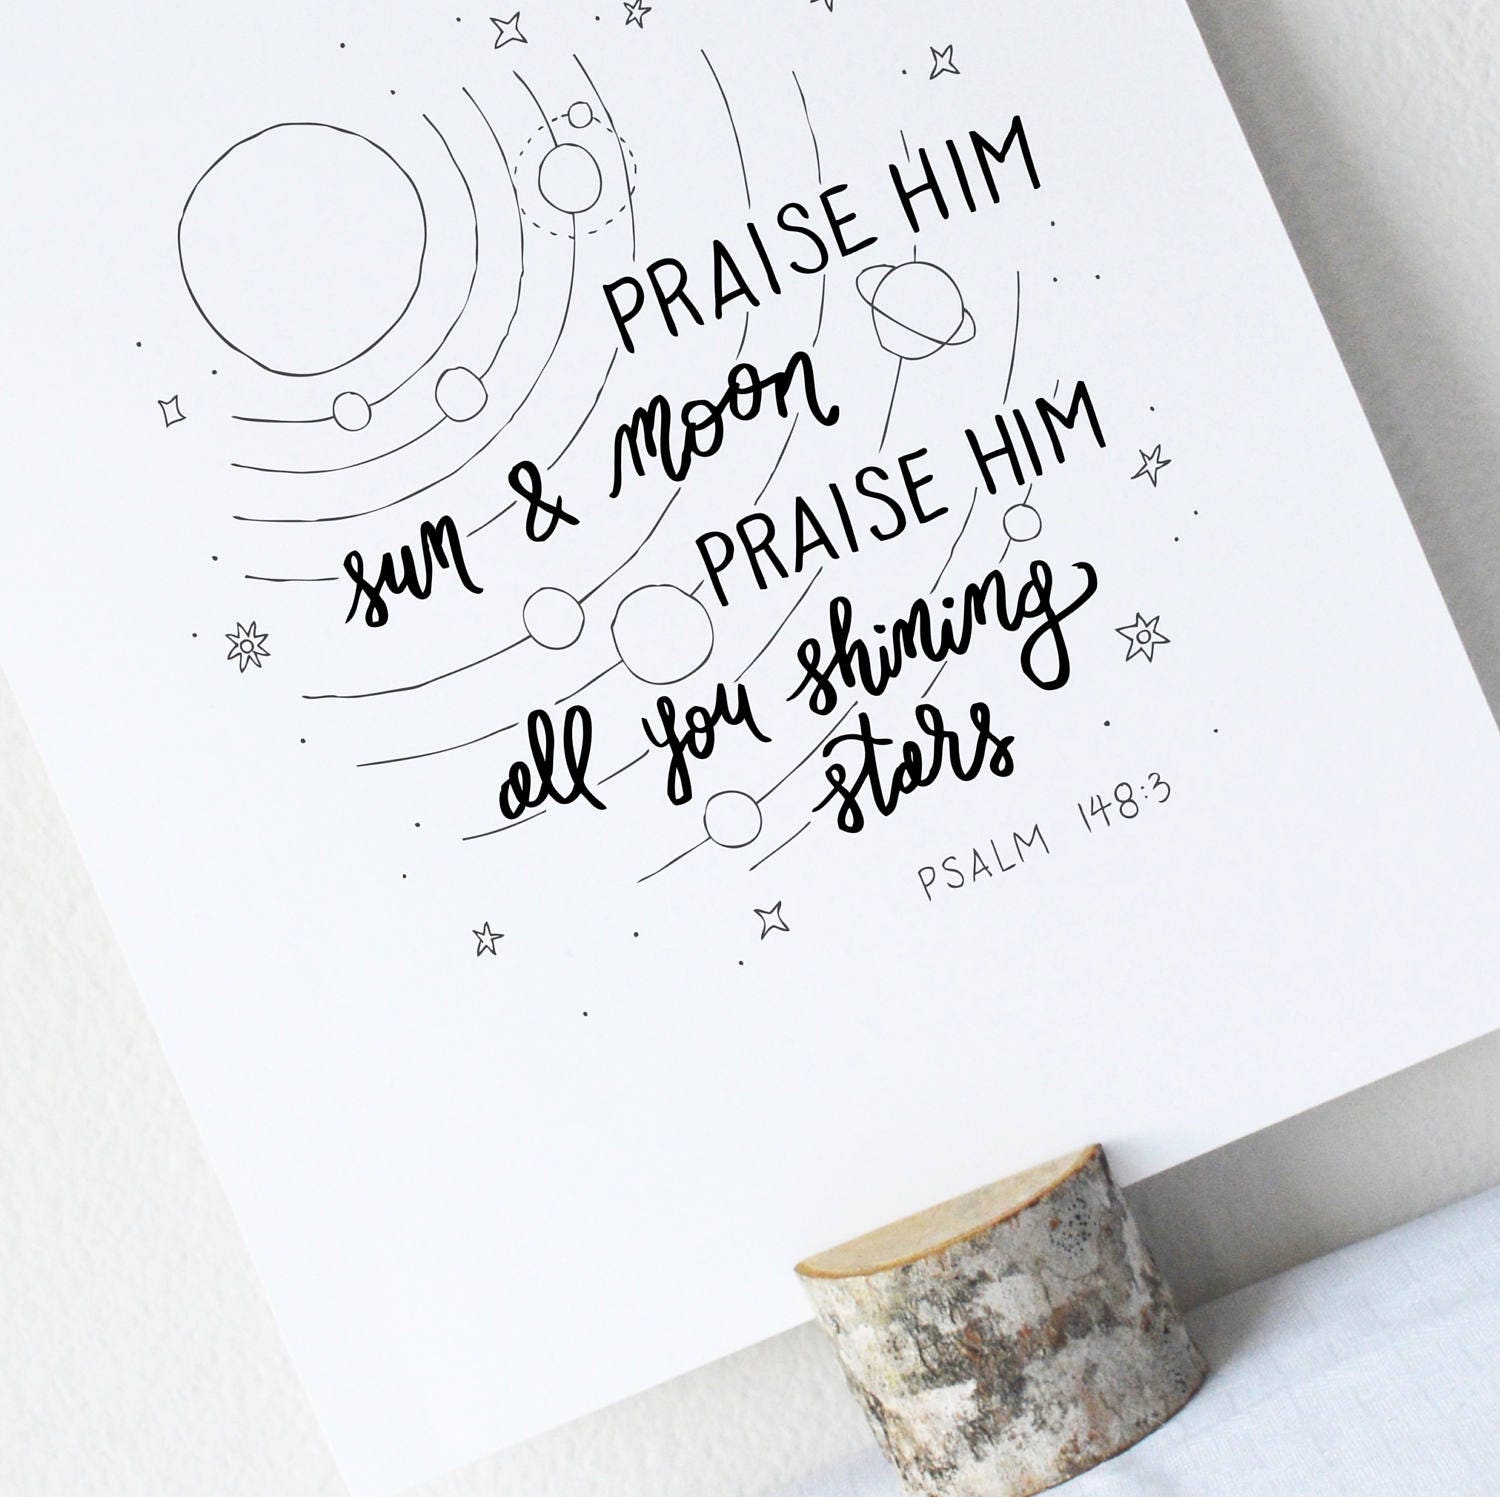 PRAISE HIM
sun & moon
PRAISE HIM
all you shining
stars
PSALM 148:3